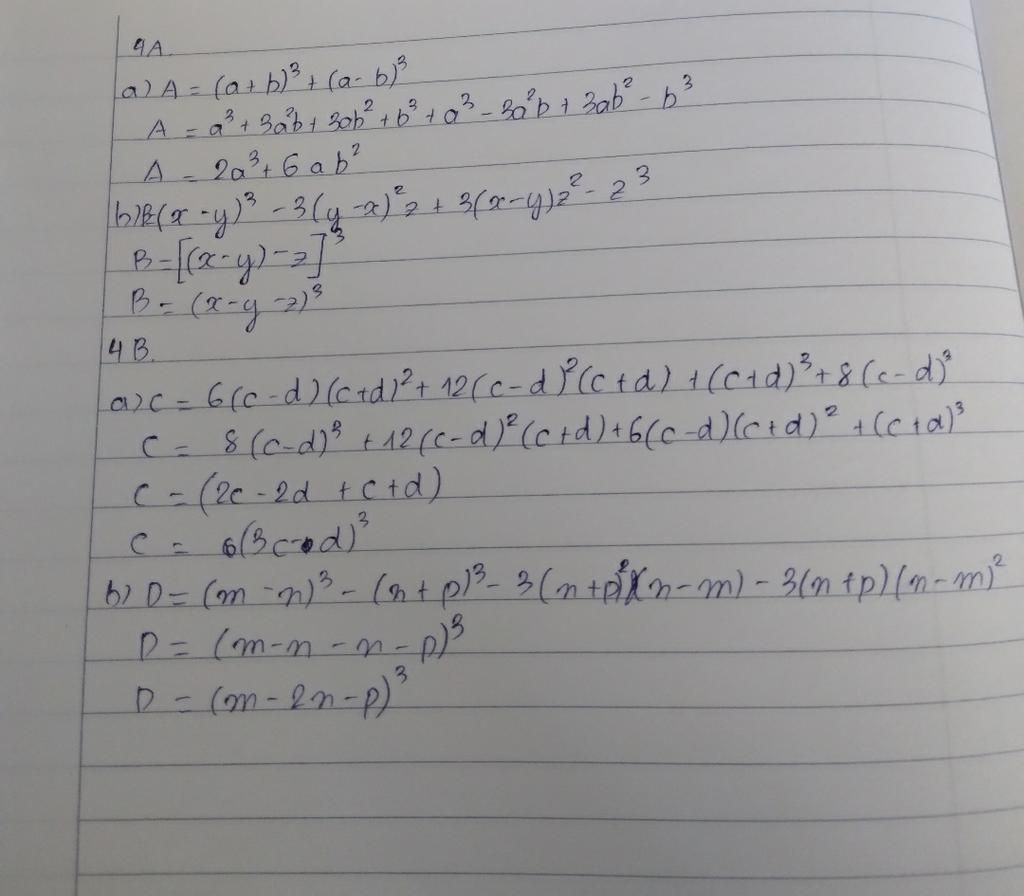 4A.
a) A = (a+b)³ + (a-b)³
A = a³ + 3a²b + 3ab² + b³ + a³ - 3a²b + 3ab² - b³
A = 2a³ + 6ab²
b) B=(x-y)³ - 3(y-x)²z + 3(x-y)z² - z³
B = [(x-y)-z]³
B = (x-y-z)³
4B.
a) C = 6(c-d)(c+d)² + 12(c-d)²(c+d) + (c+d)³ + 8(c-d)³
C = 8(c-d)³ + 12(c-d)²(c+d) + 6(c-d)(c+d)² + (c+d)³
C = (2c-2d+c+d)
C = (3c-d)³
b) D = (m-n)³ - (n+p)³ - 3(n+p)²(n-m) - 3(n+p)(n-m)²
D = (m-n-n-p)³
D = (m-2n-p)³